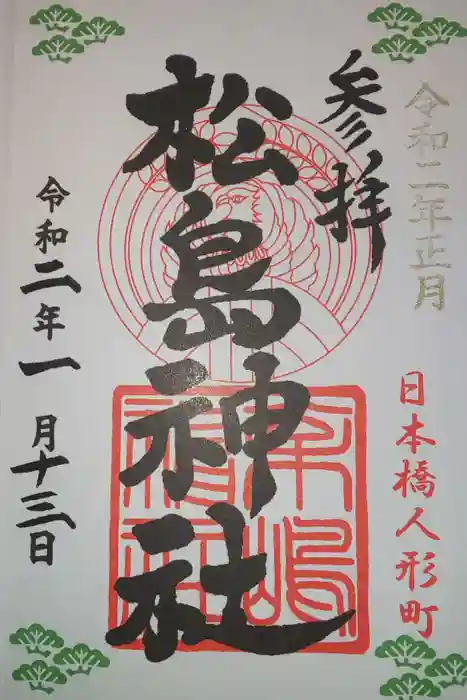 令和二年正月
日本橋人形町
参拝
松島神社
令和二年一月十三日